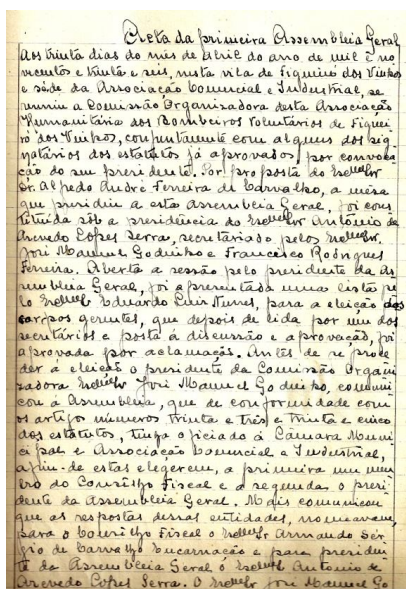 Acta da primeira Assembleia Geral
Aos trinta dias do mês de Abril do ano de mil e no
vecentos e trinta e seis, nesta vila de Figueiró dos Vinhos
e séde da Associação Comercial e Industrial, se
reuniu a Comissão Organizadora desta Associação
Humanitária dos Bombeiros Voluntários de Figuei
ró dos Vinhos, conjuntamente com alguns dos sig
natários dos estatutos já aprovados, por convoca
ção do seu presidente. Por proposta do
Dr. Alfredo André Ferreira de Carvalho, a mesa
que presidiu a esta Assembleia Geral, foi cons
tituida sôb a presidência do António de
Azevedo Lopes Serra, secretariado pelos
José Manuel Godinho e Francisco Rodrigues
Ferreira. Aberta a sessão pelo presidente da As
sembleia Geral, foi apresentada uma lista pe
lo Eduardo Luis Nunes, para a eleição dos
corpos gerentes, que depois de lida por um dos
secretários e posta á discussão e aprovação, foi
aprovada por aclamação. Antes de se proce
der á eleição o presidente da Comissão Organi
zadora José Manuel Godinho, comuni
cou á Assembleia, que de conformidade com
os artigo números trinta e três e trinta e cinco
dos estatutos, tinha oficiado á Câmara Muni
cipal e Associação Comercial e Industrial,
afim-de estas elegerem, a primeira um mem
bro do Conselho Fiscal e a segunda o presi
dente da Assembleia Geral. Mais comunicou
que as respostas dessas entidades, nomeavam,
para o Conselho Fiscal o Armando Sér
gio de Carvalho Encarnação e para presiden
te da Assembleia Geral o António de
Azevedo Lopes Serra. O José Manuel Go